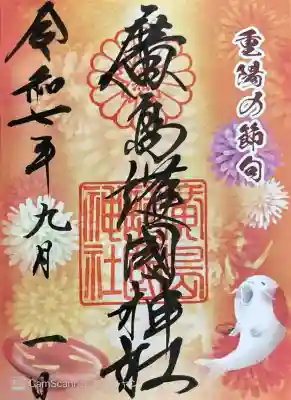 重陽の節句
廣島護國神社
廣島護國神社
令和七年九月一日
CamScan